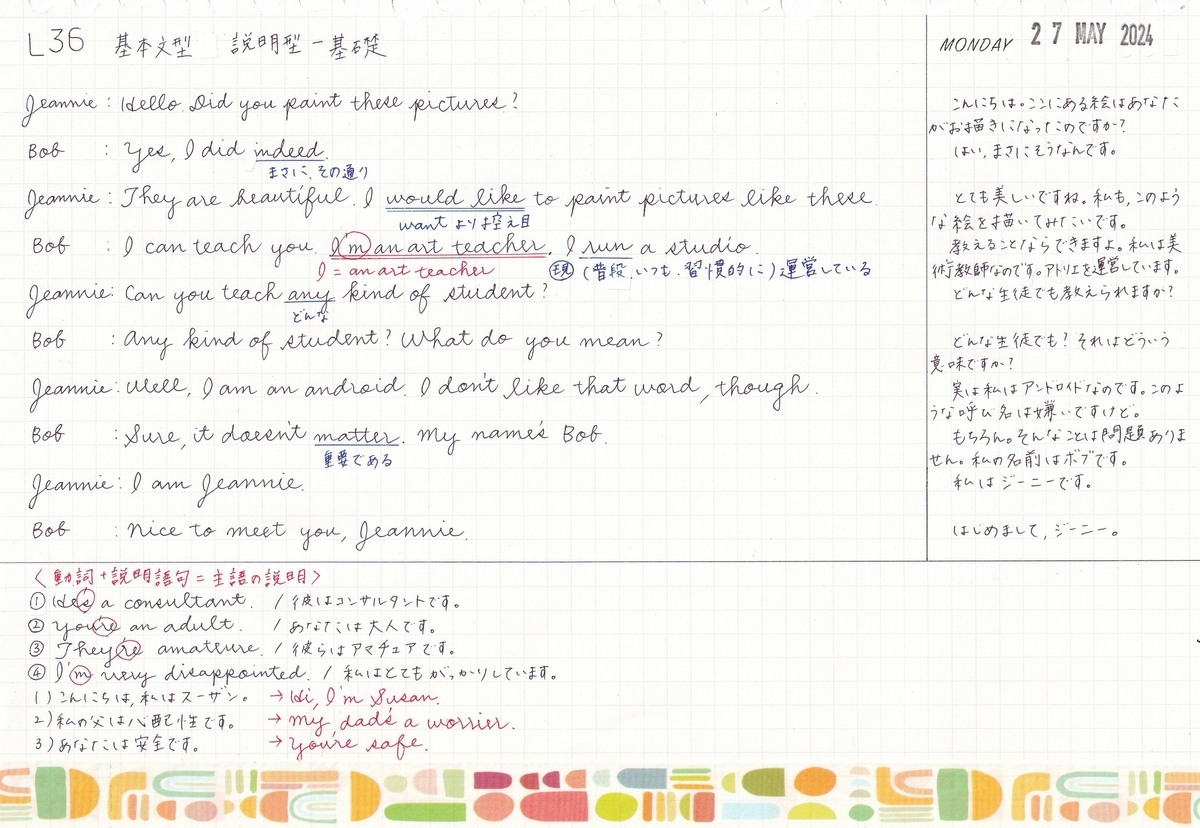 L36 基本文型 説明型 - 基礎
MONDAY 27 MAY 2024
Jeannie : Hello. Did you paint these pictures?
Bob : Yes, I did indeed.
まさに、その通り
Jeannie : They are beautiful. I would like to paint pictures like these.
want よりは控え目
Bob : I can teach you. I'm an art teacher. I run a studio.
I = an art teacher
現 (普段、いつも、習慣的に) 運営している
Jeannie : Can you teach any kind of student?
どんな
Bob : Any kind of student? What do you mean?
Jeannie : Well, I am an android. I don't like that word, though.
Bob : Sure, it doesn't matter. My name's Bob.
重要である
Jeannie : I am Jeannie.
Bob : Nice to meet you, Jeannie.
こんにちは。ここにある絵はあなた
がお描きになったのですか?
はい、まさにそうなんです。
とても美しいですね。私も、このよう
な絵を描いてみたいです。
教えることならできますよ。私は美
術教師なのです。アトリエを運営しています。
どんな生徒でも教えられますか?
どんな生徒でも? それはどういう
意味ですか?
実は私はアンドロイドなのです。このよ
うな呼び名は嫌いですけど。
もちろん。そんなことは問題ありま
せん。私の名前はボブです。
私はジーニーです。
はじめまして、ジーニー。
〈動詞+説明語句=主語の説明〉
① He's a consultant. / 彼はコンサルタントです。
② You're an adult. / あなたは大人です。
③ They're amateure. / 彼らはアマチュアです。
④ I'm very disappointed. / 私はとてもがっかりしています。
1) こんにちは、私はスーザン。 → Hi, I'm Susan.
2) 私の父は心配性です。 → My dad's a worrier.
3) あなたは安全です。 → You're safe.